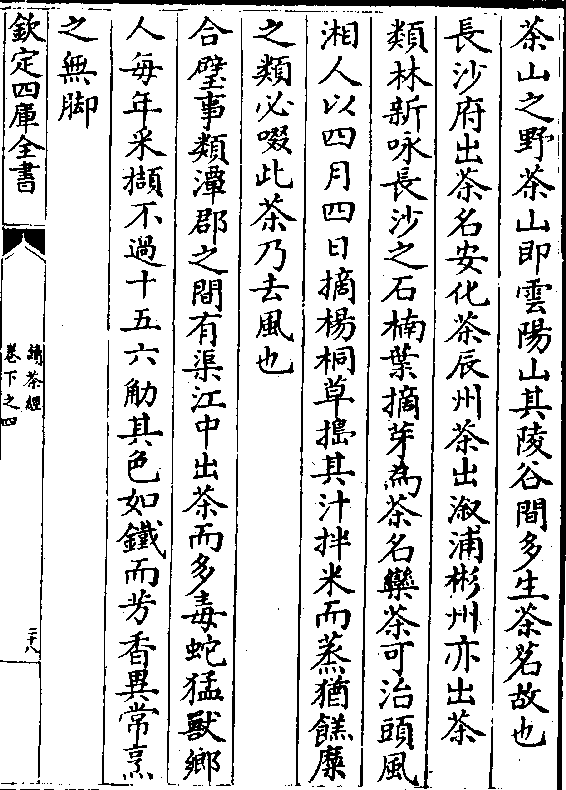 茶山之野茶山即雲陽山其陵谷間多生茶茗故也
長沙府出茶名安化茶辰州茶出溆浦彬州亦出茶
類林新咏長沙之石楠葉摘芽為茶名欒茶可治頭風
湘人以四月四日摘楊桐草搗其汁拌米而蒸猶餻糜
之類必啜此茶乃去風也
合璧事類潭郡之間有渠江中出茶而多毒蛇猛獸鄉
人每年采擷不過十五六觔其色如鐵而芳香異常烹
之無脚
欽定四庫全書
續茶經
卷下之四
三十八